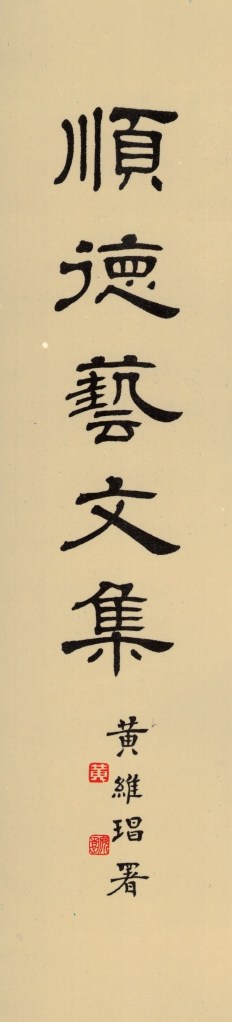 順德藝文集
黃維琩署
黃